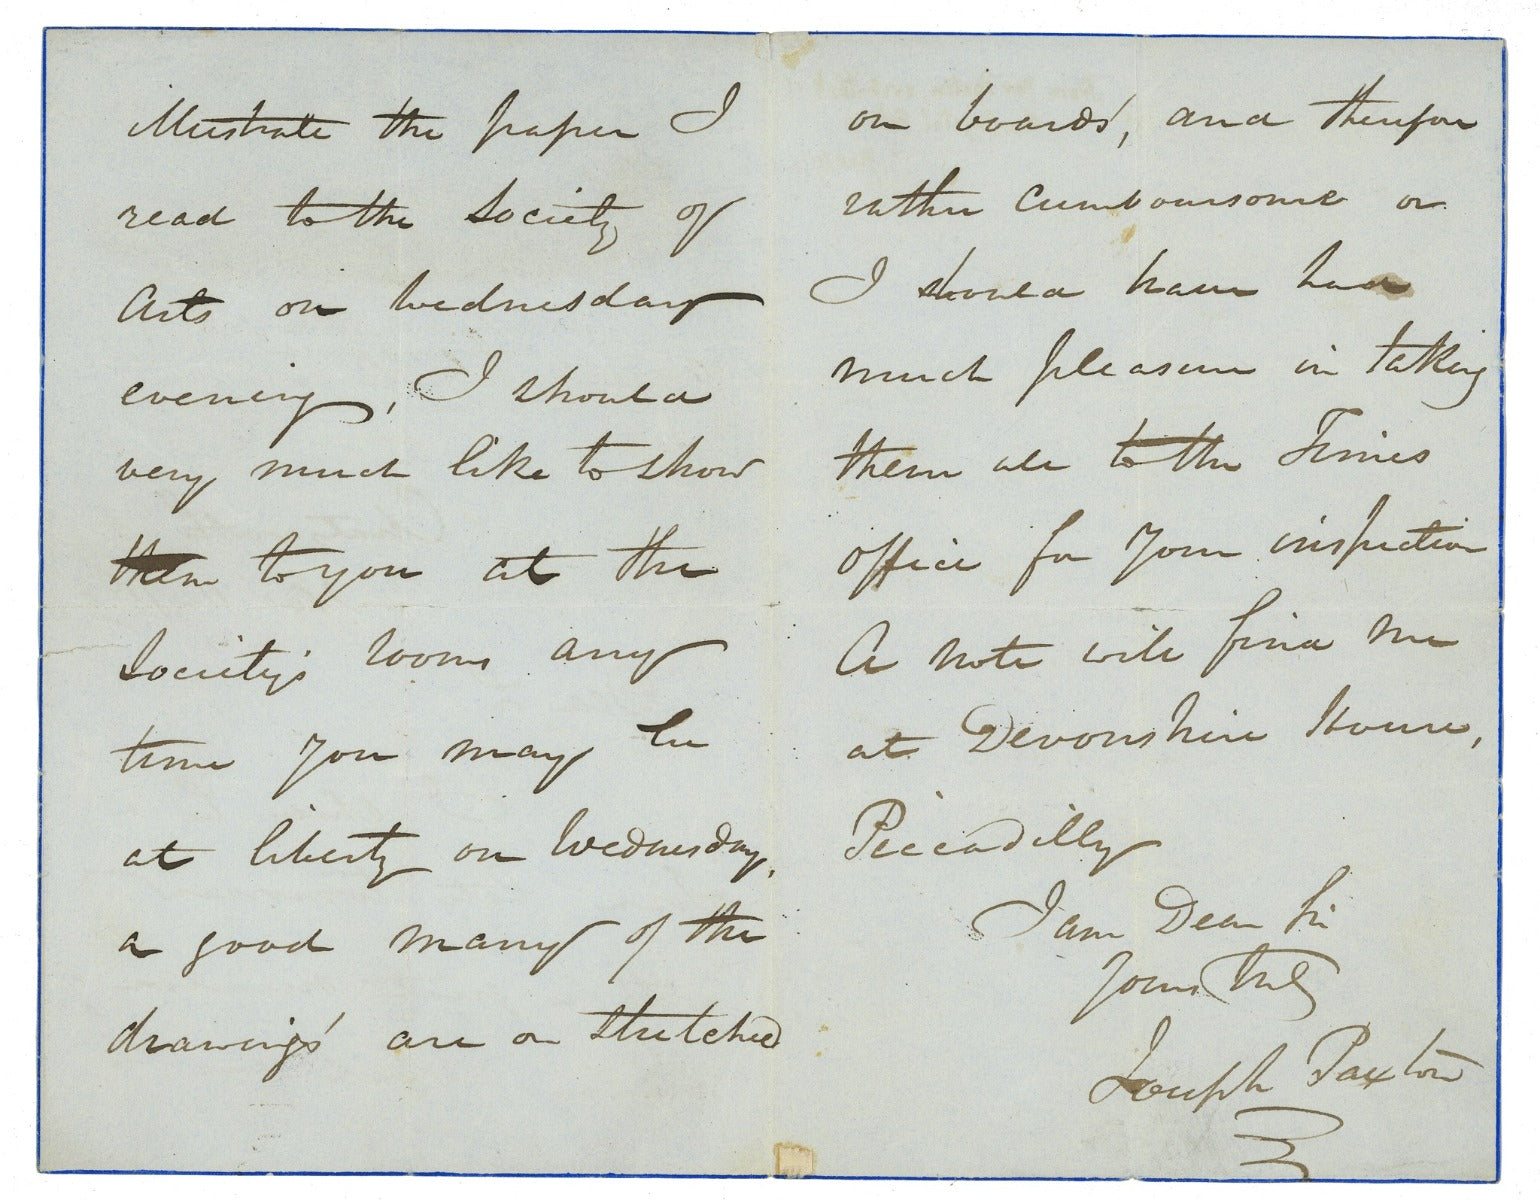 illustrate the paper I
read to the Society of
Arts on Wednesday
evening, I should
very much like to show
them to you at the
Society's rooms any
time you may be
at liberty on Wednesday,
a good many of the
drawings' are on stretched
on boards', and therefore
rather cumboursome or
I should have had
much pleasure in taking
them all to the Times
office for your inspection
A note will find me
at Devonshire House,
Piccadilly
I am Dear Sir
Yours truly
Joseph Paxton